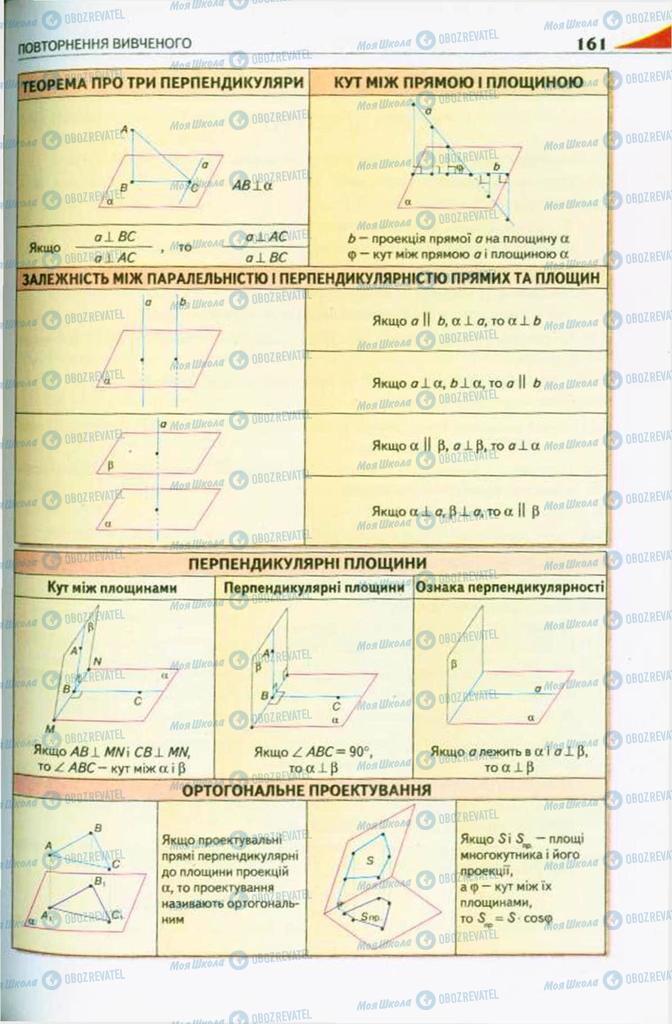 ПОВТОРНЕННЯ ВИВЧЕНОГО 161
ТЕОРЕМА ПРО ТРИ ПЕРПЕНДИКУЛЯРИ
A
a
B
C
α
AB⊥α
Якщо a⊥BC / a⊥AC , то a⊥AC / a⊥BC
КУТ МІЖ ПРЯМОЮ І ПЛОЩИНОЮ
a
φ
b
α
b – проекція прямої a на площину α
φ – кут між прямою a і площиною α
ЗАЛЕЖНІСТЬ МІЖ ПАРАЛЕЛЬНІСТЮ І ПЕРПЕНДИКУЛЯРНІСТЮ ПРЯМИХ ТА ПЛОЩИН
a b
α
Якщо a || b, α⊥a, то α⊥b
Якщо a⊥α, b⊥α, то a || b
a
β
α
Якщо α || β, a⊥β, то a⊥α
Якщо α⊥a, β⊥a, то α || β
ПЕРПЕНДИКУЛЯРНІ ПЛОЩИНИ
Кут між площинами
β
A
N
α
B
C
M
Якщо AB⊥MN і CB⊥MN,
то ∠ABC – кут між α і β
Перпендикулярні площини
A
β
B
C
α
Якщо ∠ABC = 90°,
то α⊥β
Ознака перпендикулярності
β
a
α
Якщо a лежить в α і a⊥β,
то α⊥β
ОРТОГОНАЛЬНЕ ПРОЕКТУВАННЯ
B
A
C
B₁
A₁
C₁
α
Якщо проектувальні
прямі перпендикулярні
до площини проекцій
α, то проектування
називають ортогональ-
ним
S
Sпр
Якщо S і Sпр – площі
многокутника і його
проекції,
а φ – кут між їх
площинами,
то Sпр = S · cosφ
МояШкола OBOZREVATEL